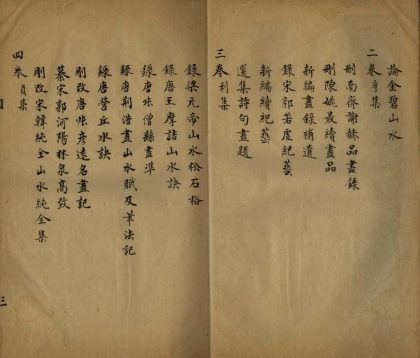 論金碧山水
二卷亨集
刪南齊謝赫品畫錄
刪陳姚最續畫品
新編畫錄補遺
錄宋郭若虛紀藝
新編續紀藝
選集詩句畫題
三卷利集
錄梁元帝山水松石格
錄唐王摩詰山水訣
錄唐張僧繇畫準
錄唐荆浩畫山水賦及筆法記
錄唐營丘水訣
刪改唐張彥遠名畫記
纂宋郭河陽林泉高致
四卷貞集
刪改宋韓純全山水純全集
三